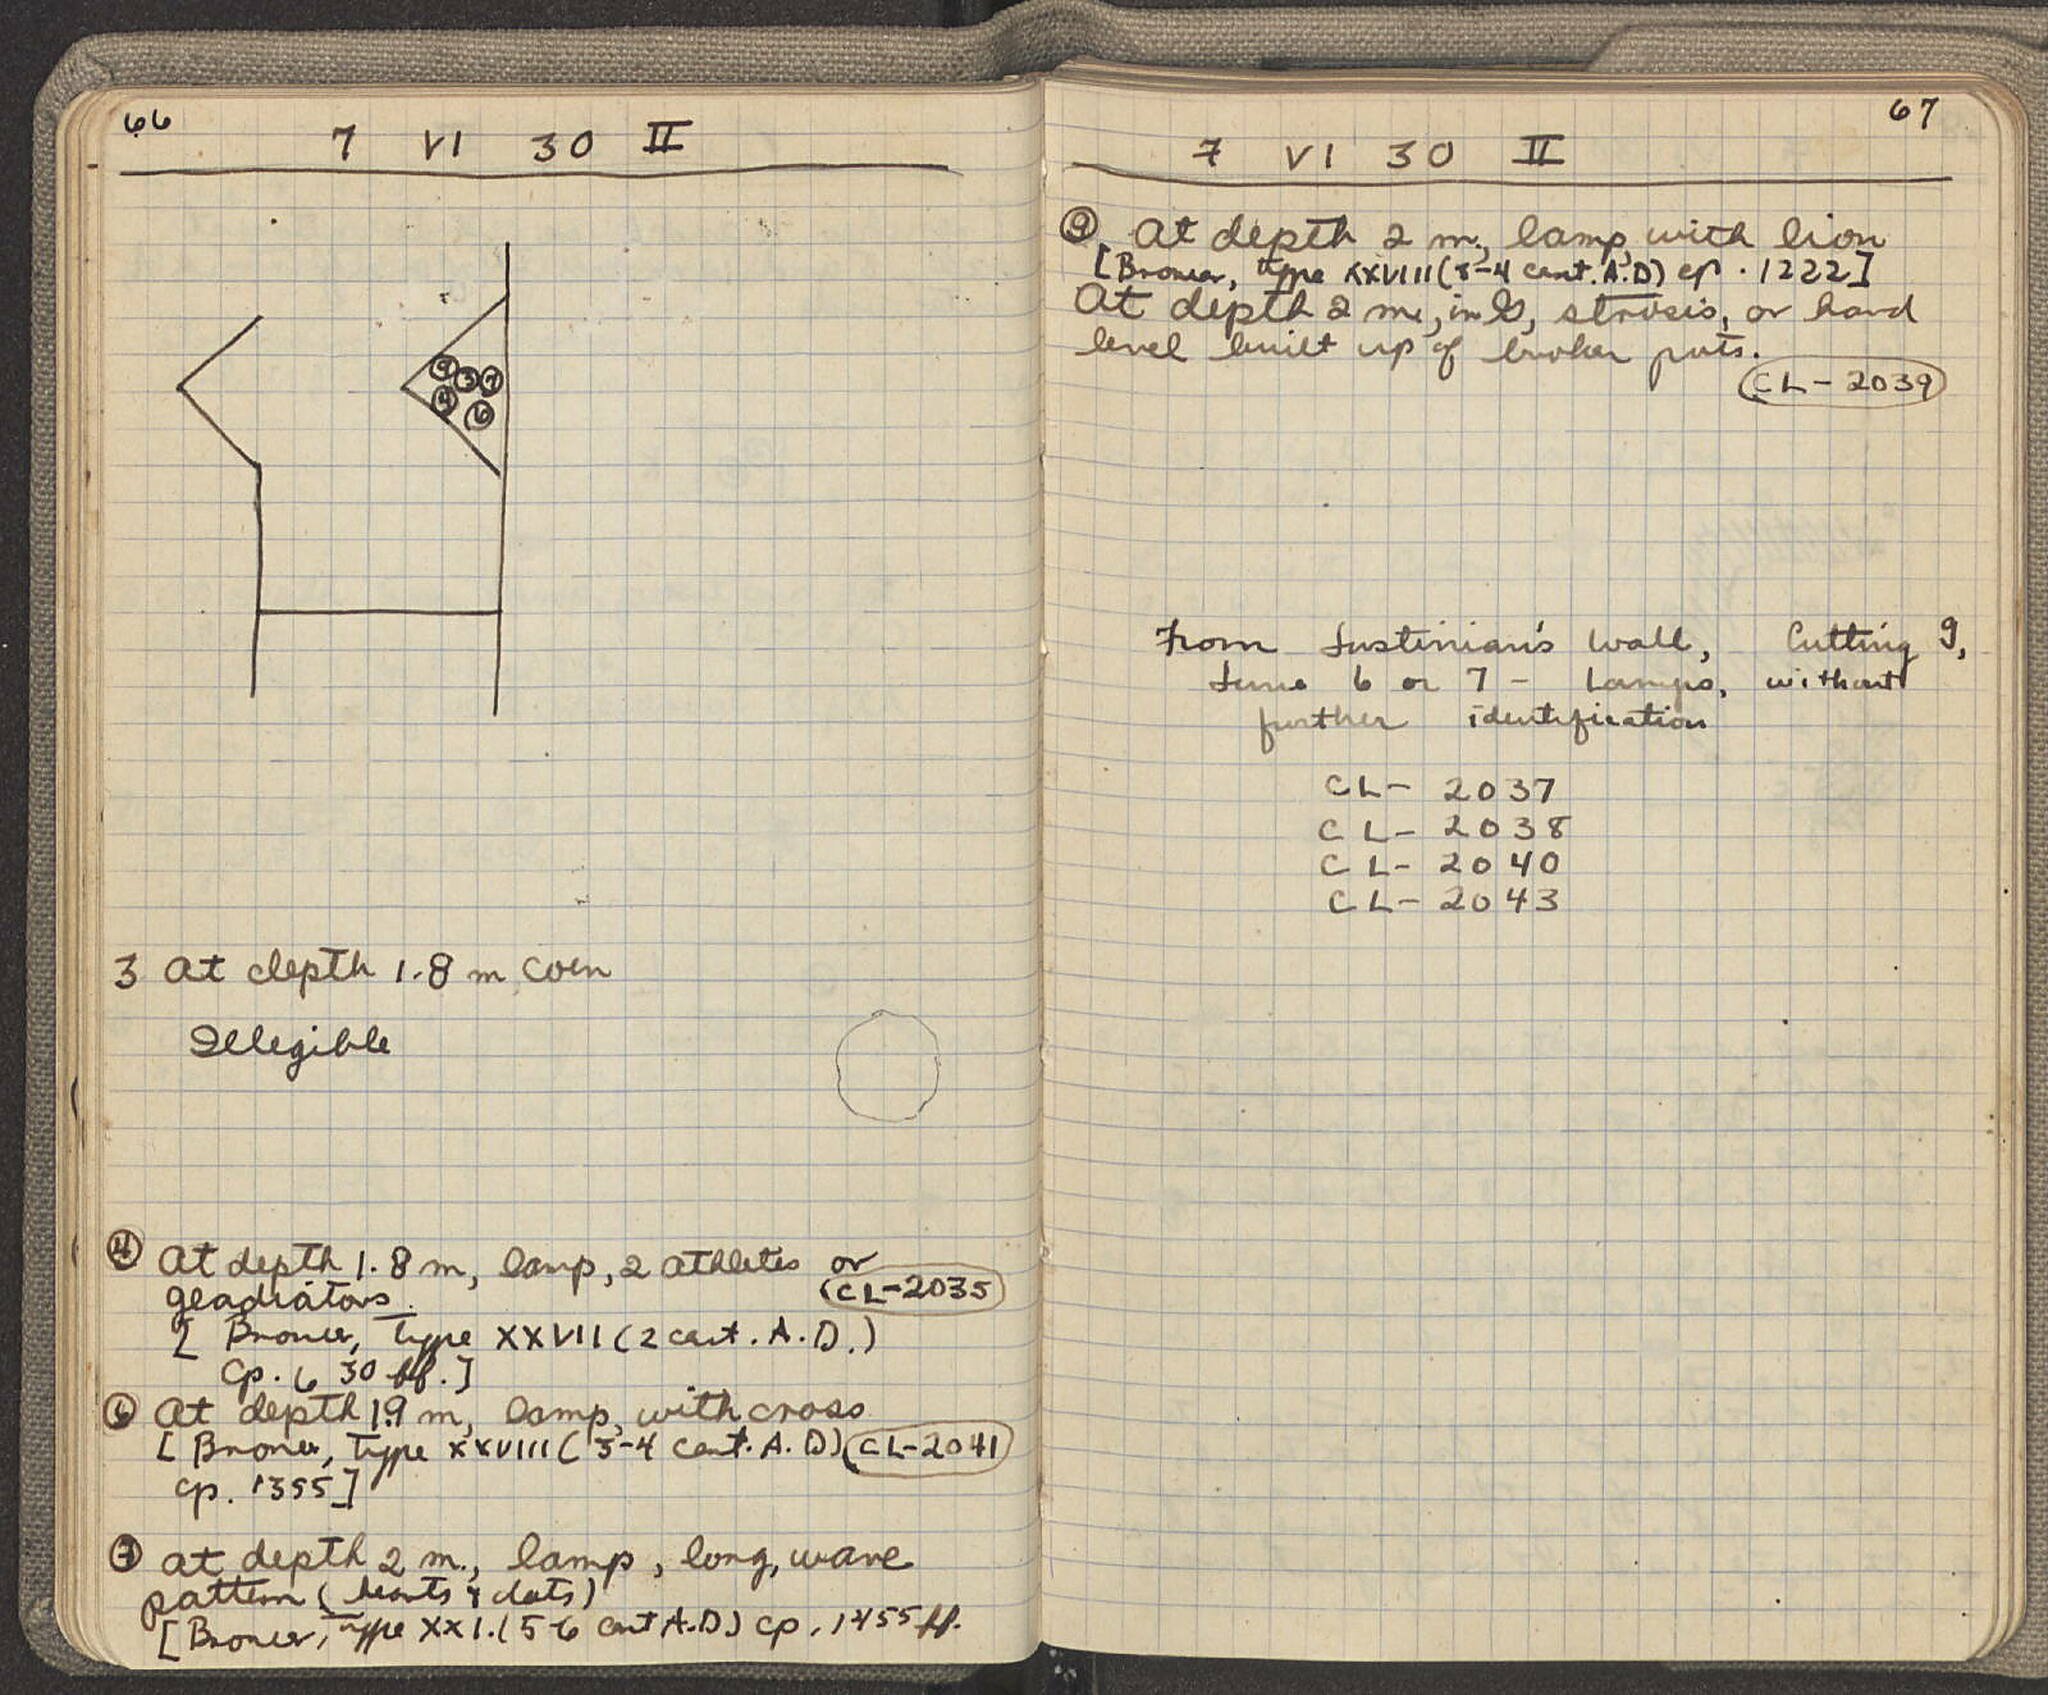 66
7 VI 30 II
9 3 7
4 6
3 At depth 1.8 m coin
Illegible
4 At depth 1.8 m, lamp, 2 athletes or
gladiators. CL-2035
[Broneer, Type XXVII (2 cent. A.D.)
cp. 630 ff.]
6 At depth 1.9 m, lamp, with cross
[Broneer, Type XXVIII (3-4 cent. A.D) CL-2041
cp. 1355]
7 At depth 2 m., lamp, long, wave
pattern (hearts & dots)
[Broneer, Type XXI. (5-6 cent A.D) cp. 1455 ff.
67
7 VI 30 II
9 At depth 2 m., lamp, with lion
[Broneer, type XXVIII (3-4 cent. A.D) cp. 1222]
At depth 2 m., in strosis, or hard
level built up of broken pots.
CL-2039
From Justinian's Wall, Cutting 9,
June 6 or 7 - Lamps, without
further identification
CL- 2037
CL- 2038
CL- 2040
CL- 2043